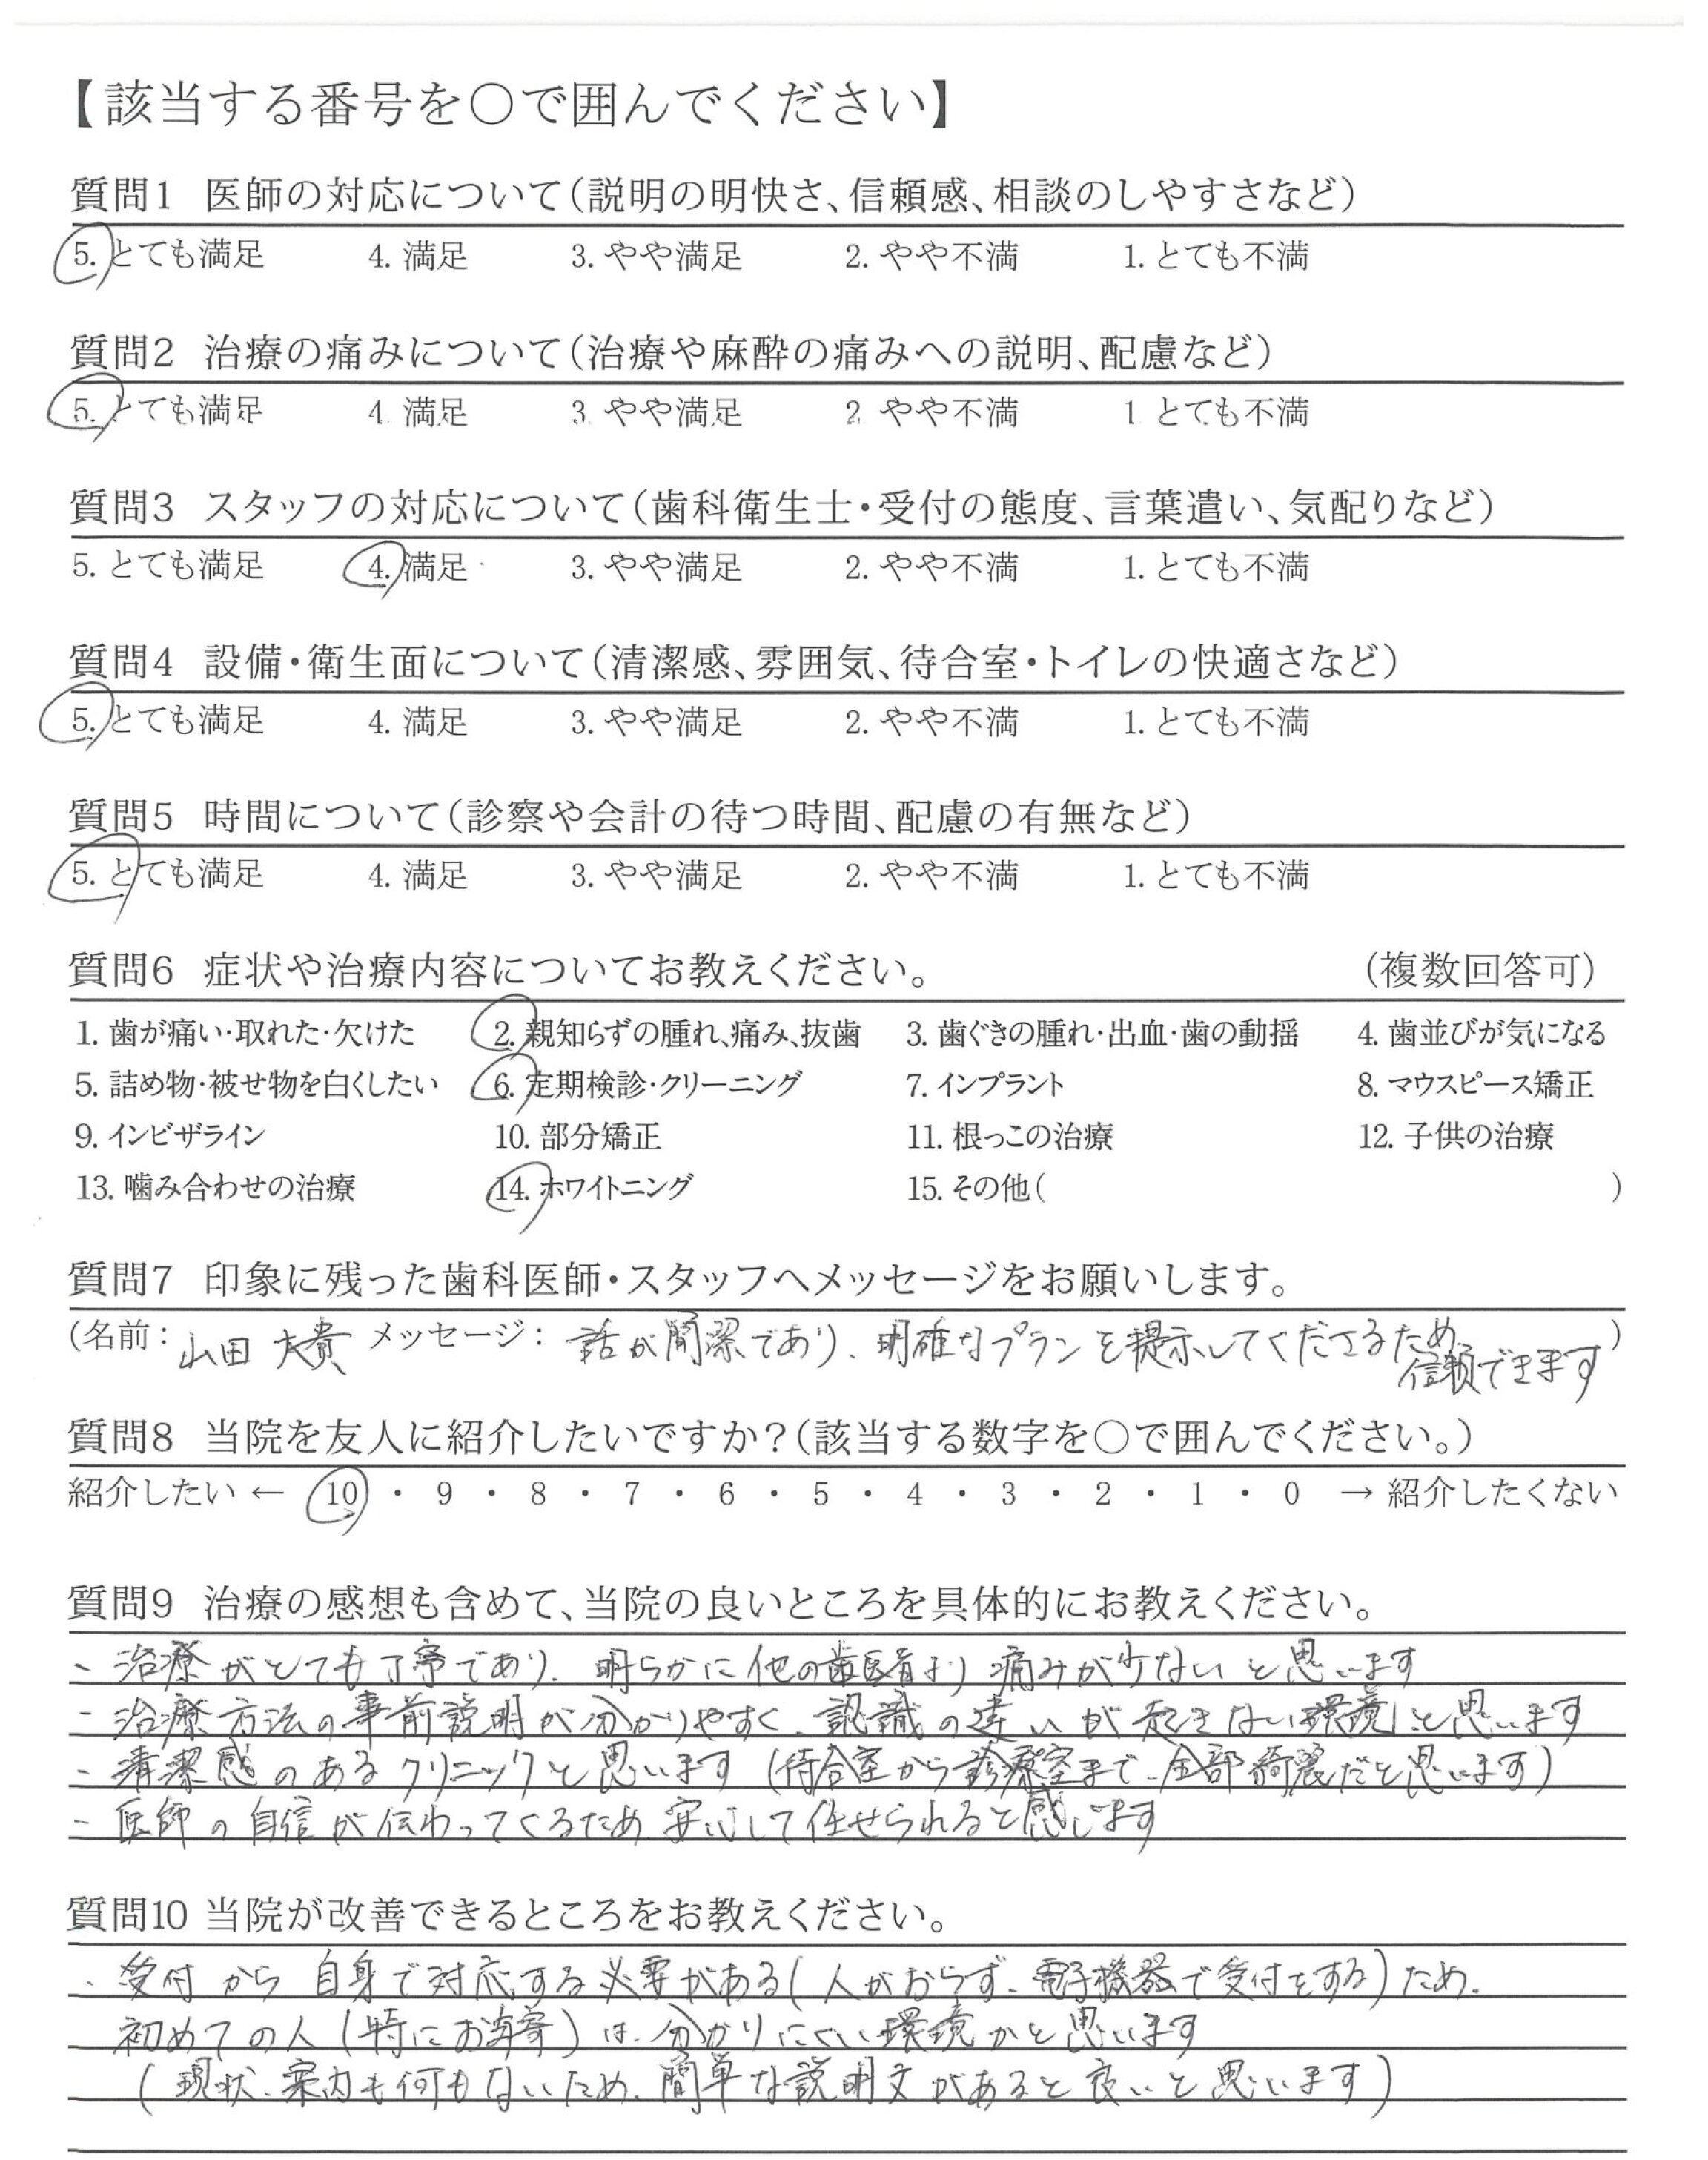 【該当する番号を〇で囲んでください】
質問1 医師の対応について（説明の明快さ、信頼感、相談のしやすさなど）
5. とても満足 4. 満足 3. やや満足 2. やや不満 1. とても不満
質問2 治療の痛みについて（治療や麻酔の痛みへの説明、配慮など）
5. とても満足 4. 満足 3. やや満足 2. やや不満 1. とても不満
質問3 スタッフの対応について（歯科衛生士・受付の態度、言葉遣い、気配りなど）
5. とても満足 4. 満足 3. やや満足 2. やや不満 1. とても不満
質問4 設備・衛生面について（清潔感、雰囲気、待合室・トイレの快適さなど）
5. とても満足 4. 満足 3. やや満足 2. やや不満 1. とても不満
質問5 時間について（診察や会計の待つ時間、配慮の有無など）
5. とても満足 4. 満足 3. やや満足 2. やや不満 1. とても不満
質問6 症状や治療内容についてお教えください。 （複数回答可）
1. 歯が痛い・取れた・欠けた 2. 親知らずの腫れ、痛み、抜歯 3. 歯ぐきの腫れ・出血・歯の動揺 4. 歯並びが気になる
5. 詰め物・被せ物を白くしたい 6. 定期検診・クリーニング 7. インプラント 8. マウスピース矯正
9. インビザライン 10. 部分矯正 11. 根っこの治療 12. 子供の治療
13. 噛み合わせの治療 14. ホワイトニング 15. その他（ ）
質問7 印象に残った歯科医師・スタッフへメッセージをお願いします。
（名前： 山田 大貴 メッセージ： 話が簡潔であり、明確なプランを提示してくださるため、
信頼できます ）
質問8 当院を友人に紹介したいですか？（該当する数字を〇で囲んでください。）
紹介したい ← 10 ・ 9 ・ 8 ・ 7 ・ 6 ・ 5 ・ 4 ・ 3 ・ 2 ・ 1 ・ 0 → 紹介したくない
質問9 治療の感想も含めて、当院の良いところを具体的にお教えください。
・治療がとても丁寧であり、明らかに他の歯医者より痛みが少ないと思います
・治療方法の事前説明が分かりやすく、認識の違いが起きない環境と思います
・清潔感のあるクリニックと思います（待合室から診療室まで、全部綺麗だと思います）
・医師の自信が伝わってくるため、安心して任せられると感じます
質問10 当院が改善できるところをお教えください。
・受付から自身で対応する必要がある（人がおらず、電子機器で受付をする）ため、
初めての人（特にお年寄）は、分かりにくい環境かと思います
（現状、案内も何もないため、簡単な説明文があると良いと思います）